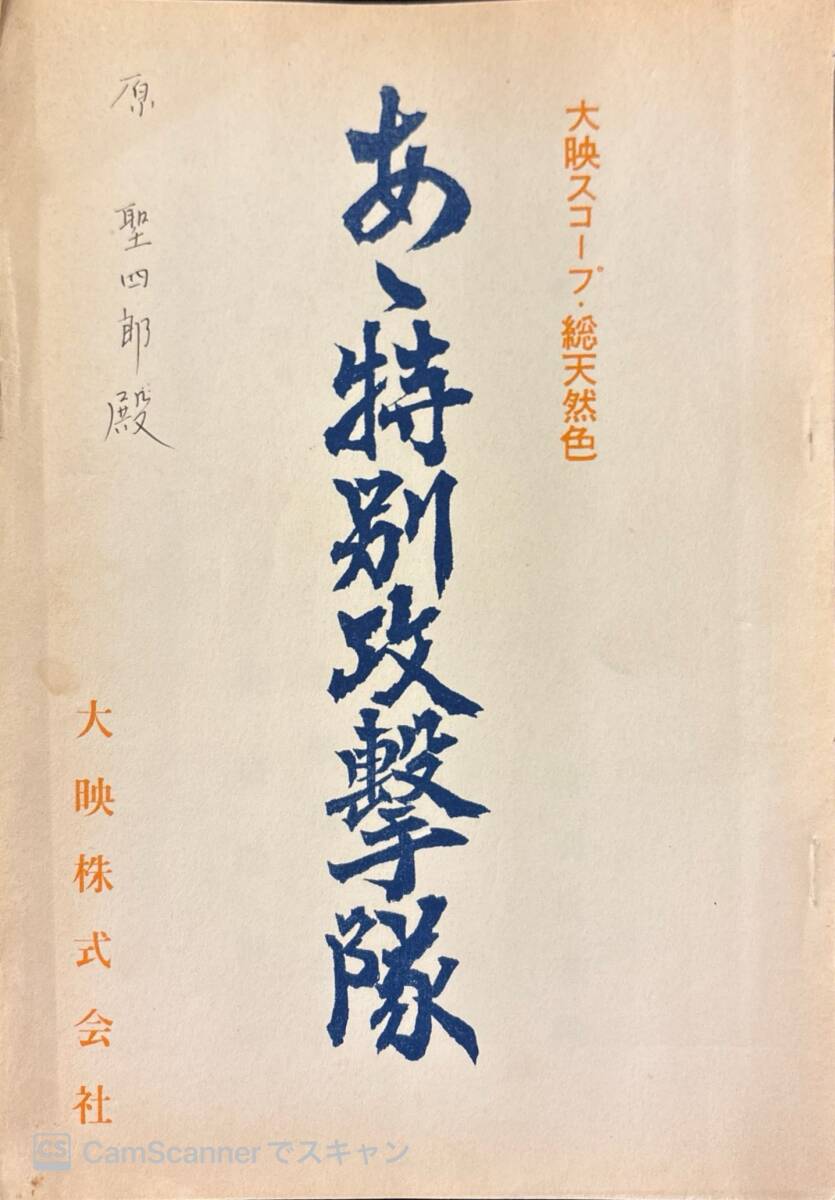 大映スコープ・総天然色
あゝ特別攻撃隊
原 聖四郎殿
大映株式会社
CS CamScannerでスキャン